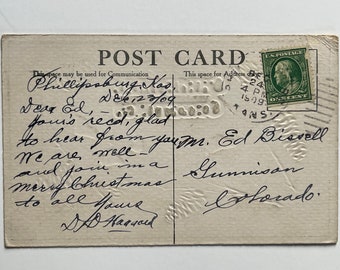 POST CARD
This space may be used for Communication
This space for Address
Phillipsburg, Kas.
Dec, 22/09
Dear Ed,
your's recd, glad
to hear from you
We are, well
and join, in a
merry Christmas
to all Yours
Mr. Ed Bissell
Gunnison
Colorado.
U.S. POSTAGE
ONE CENT
4 PM
1909
KANS